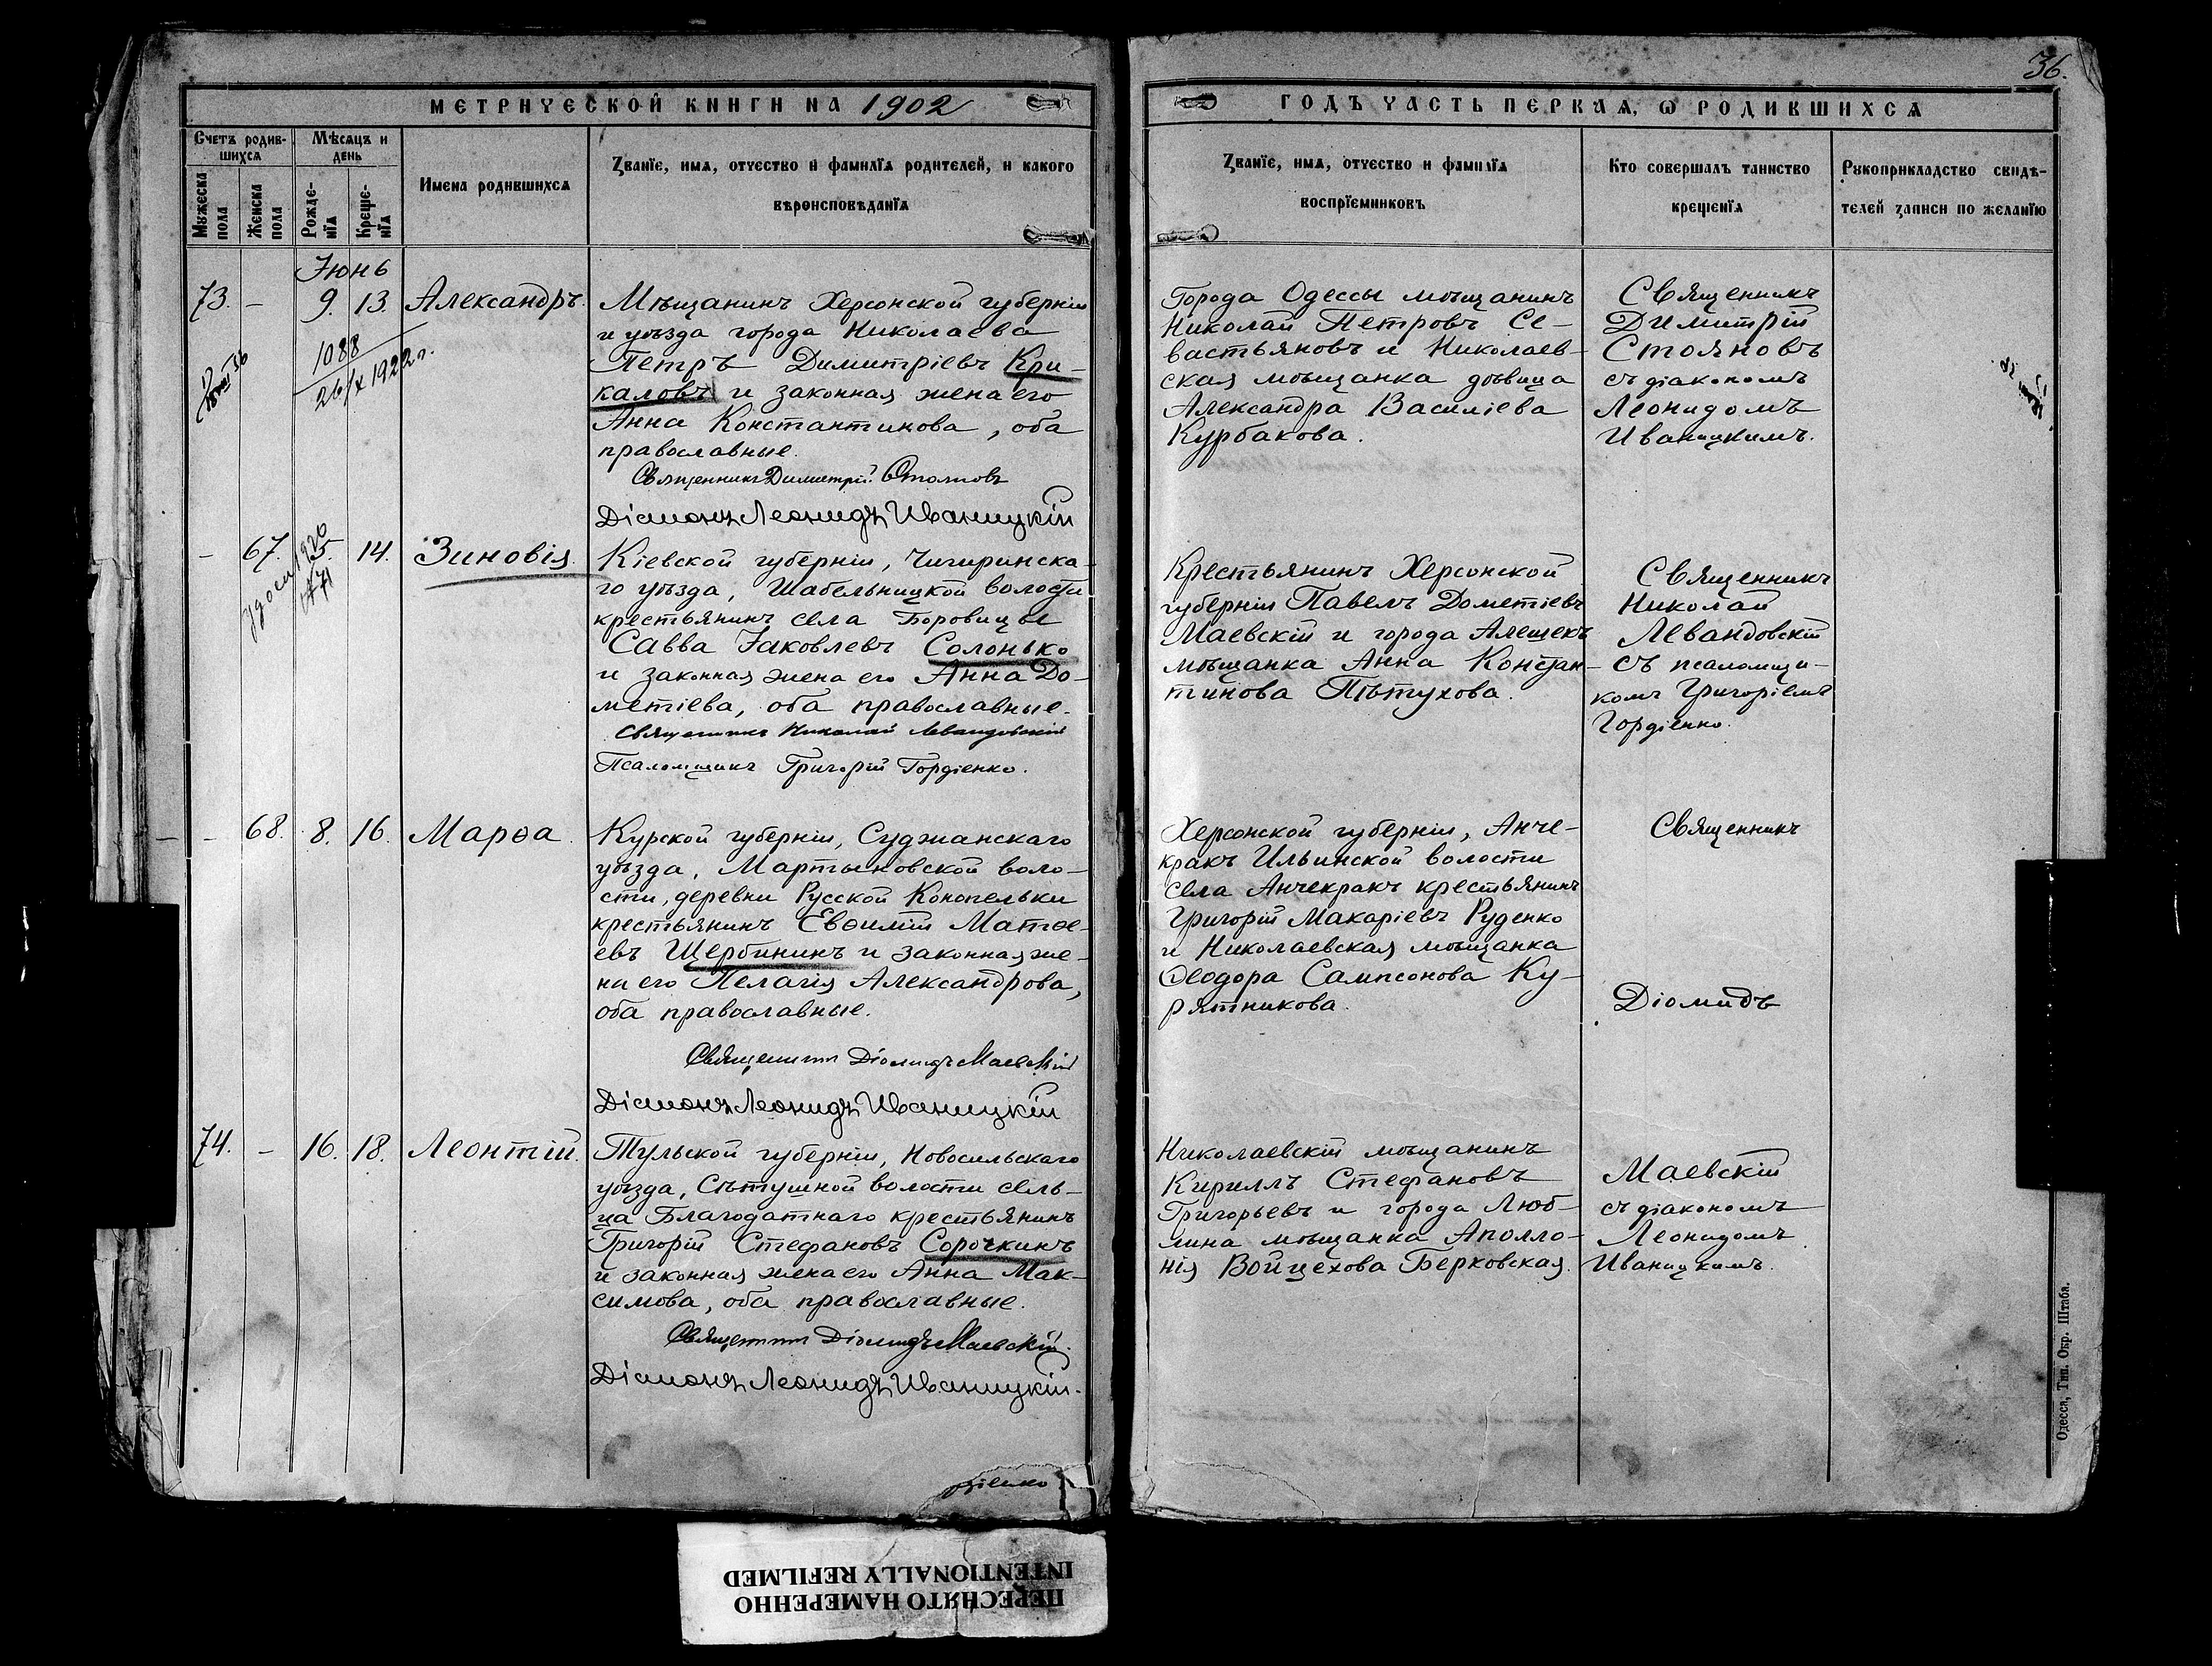 36.
МЕТРИЧЕСКОЙ КНИГИ НА 1902
ГОДЪ ЧАСТЬ ПЕРВАЯ, Ѡ РОДИВШИХСЯ
Счетъ родив-
шихся
Мужеска
пола
Женска
пола
Мѣсяцъ и
день
Рожде-
нія
Креще-
нія
Имена родившихся
Званіе, имя, отчество и фамилія родителей, и какого
вѣроисповѣданія
Званіе, имя, отчество и фамилія
воспріемниковъ
Кто совершалъ таинство
крещенія
Рукоприкладство свидѣ-
телей записи по желанію
Іюнь
73. – 9. 13. Александръ.
1088
26/X 1922 г.
Мѣщанинъ Херсонской губерніи
и уѣзда города Николаева
Петръ Димитріевъ Кри-
каловъ и законная жена его
Анна Константинова, оба
православные.
Священникъ Димитрій Стояновъ
Діаконъ Леонидъ Иваницкій
Города Одессы мѣщанинъ
Николай Петровъ Се-
вастьяновъ и Николаев-
ская мѣщанка дѣвица
Александра Василіева
Курбакова.
Священникъ
Димитрій
Стояновъ
съ діакономъ
Леонидомъ
Иваницкимъ.
– 67. 14. Зиновія.
Кіевской губерніи, Чигиринска-
го уѣзда, Шабельницкой волости
крестьянинъ села Боровицы
Савва Іаковлевъ Солонько
и законная жена его Анна До-
метіева, оба православные.
Священникъ Николай Левандовскій
Псаломщикъ Григорій Гордіенко.
Крестьянинъ Херсонской
губерніи Павелъ Дометіевъ
Маевскій и города Алешекъ
мѣщанка Анна Констан-
тинова Пѣтухова.
Священникъ
Николай
Левандовскій
съ псаломщи-
комъ Григоріемъ
Гордіенко.
– 68. 8. 16. Марѳа.
Курской губерніи, Суджанскаго
уѣзда, Мартыновской воло-
сти, деревни Русской Конопельки
крестьянинъ Евѳимій Матѳе-
евъ Щербининъ и законная же-
на его Пелагія Александрова,
оба православные.
Священникъ Діомидъ Маевскій
Діаконъ Леонидъ Иваницкій
Херсонской губерніи, Анче-
кракъ Ильинской волости
села Анчекракъ крестьянинъ
Григорій Макаріевъ Руденко
и Николаевская мѣщанка
Ѳеодора Сампсонова Ку-
рятникова.
Священникъ
Діомидъ
74. – 16. 18. Леонтій.
Тульской губерніи, Новосильскаго
уѣзда, Сѣтушной волости сель-
ца Благодатнаго крестьянинъ
Григорій Стефановъ Сорочкинъ
и законная жена его Анна Мак-
симова, оба православные.
Священникъ Діомидъ Маевскій.
Діаконъ Леонидъ Иваницкій.
Николаевскій мѣщанинъ
Кириллъ Стефановъ
Григорьевъ и города Люб-
лина мѣщанка Аполло-
нія Войцехова Берковская.
Маевскій
съ діакономъ
Леонидомъ
Иваницкимъ.
Одесса, Тип. Окр. Штаба.
ПЕРЕСНЯТО НАМЕРЕННО
INTENTIONALLY REFILMED